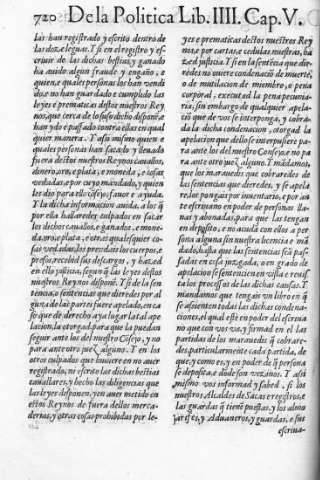 720 De la Politica Lib. IIII. Cap. V.
las han registrado y escrito dentro de
las doze leguas. Y si en el registro y es-
creuir de las dichas bestias, y ganado
ha auido algun fraude y engaño, e
quiene, quales personas los han vendi
do, e no han guardado e cumplido las
leyes e prematicas destos nuestros Rey
nos, que cerca de lo suso dicho disponē, e
han ydo e passado contra ellas en qual
quier manera. Y assi mismo quien e
quales personas han sacado y leuado
fuera destos nuestros Reynos cauallos,
dinero, oro, e plata, e moneda, e cosas
vedadas, e por cuyo mandado, y quien
les dio para ello consejo, fauor e ayuda.
Y la dicha informacion auida, a los q̃
por ella hallaredes culpados en sacar
los dichos cauallos, e ganados, e mone-
da, oro, e plata, e otras qualesquier co-
sas vedadas, les prended los cuerpos, e
presos, recebid sus descargos, y hazed
en ello justicia, segun q̃ las leyes destos
nuestros Reynos disponē. Y si de la sen
tencia, o sentencias que dieredes por al
guna de las partes fuere apelado, en ca
so que de derecho aya lugar la tal ape-
lacion, la otorgad para que la puedan
seguir ante los del nuestro Cōsejo, y no
para ante otro juez alguno. Y en los
otros culpados que huuiere no auer
registrado, ni escrito las dichas bestias
cauallares, y hecho las diligencias que
las leyes disponen, y en auer metido en
estos Reynos de fuera dellos merca-
derias, y otras cosas prohibidas por le-
yes e prematicas destos nuestros Rey
nos, e por cartas, e cedulas nuestras, ha
zed justicia. Y si en la sentēcia que die-
redes no vuiere condenaciō de muerte,
o de mutilacion de miembro, o pena
corporal, executad la pena pecunia-
ria, sin embargo de qualquier apela-
ciō que de vos se interponga, y cobra-
da la dicha condenacion, otorgad la
apelacion que dello se interpusiere pa-
ra ante los del nuestro Consejo, e no pa
ra ante otro juez alguno. Y mādamos
que los marauedis que cobraredes de
las sentencias que dieredes, y se apela
re, los pongais por inuentario, e por an
te escriuano en poder de personas lla-
nas y abonadas, para que las tengan
en deposito, e no acuda con ellos a per
sona alguna sin nuestra licencia e mā
dado, hasta que las sentencias seā pas-
sadas en cosa juzgada, o en grado de
apelacion se sentencien en vista e reuis̃
ta los processos de las dichas causas. Y
mandamos que tengais vn libro en q̃
se assienten todas las dichas condena-
ciones, el qual esté en poder del escriua
no que con vos va, y firmad en el las
partidas de los marauedis q̃ cobrare-
des, particularmente cada partida, de
que, y como es, y en poder de q̃ persona
se deposita, e dōde son vezinos. Y assi
mismo vos informad y sabed, si los
nuestros Alcaldes de Sacas e registros, e
las guardas q̃ tiene puestas, y los almo
xarifes, y Aduaneros, y guardas, e sus
escriua-